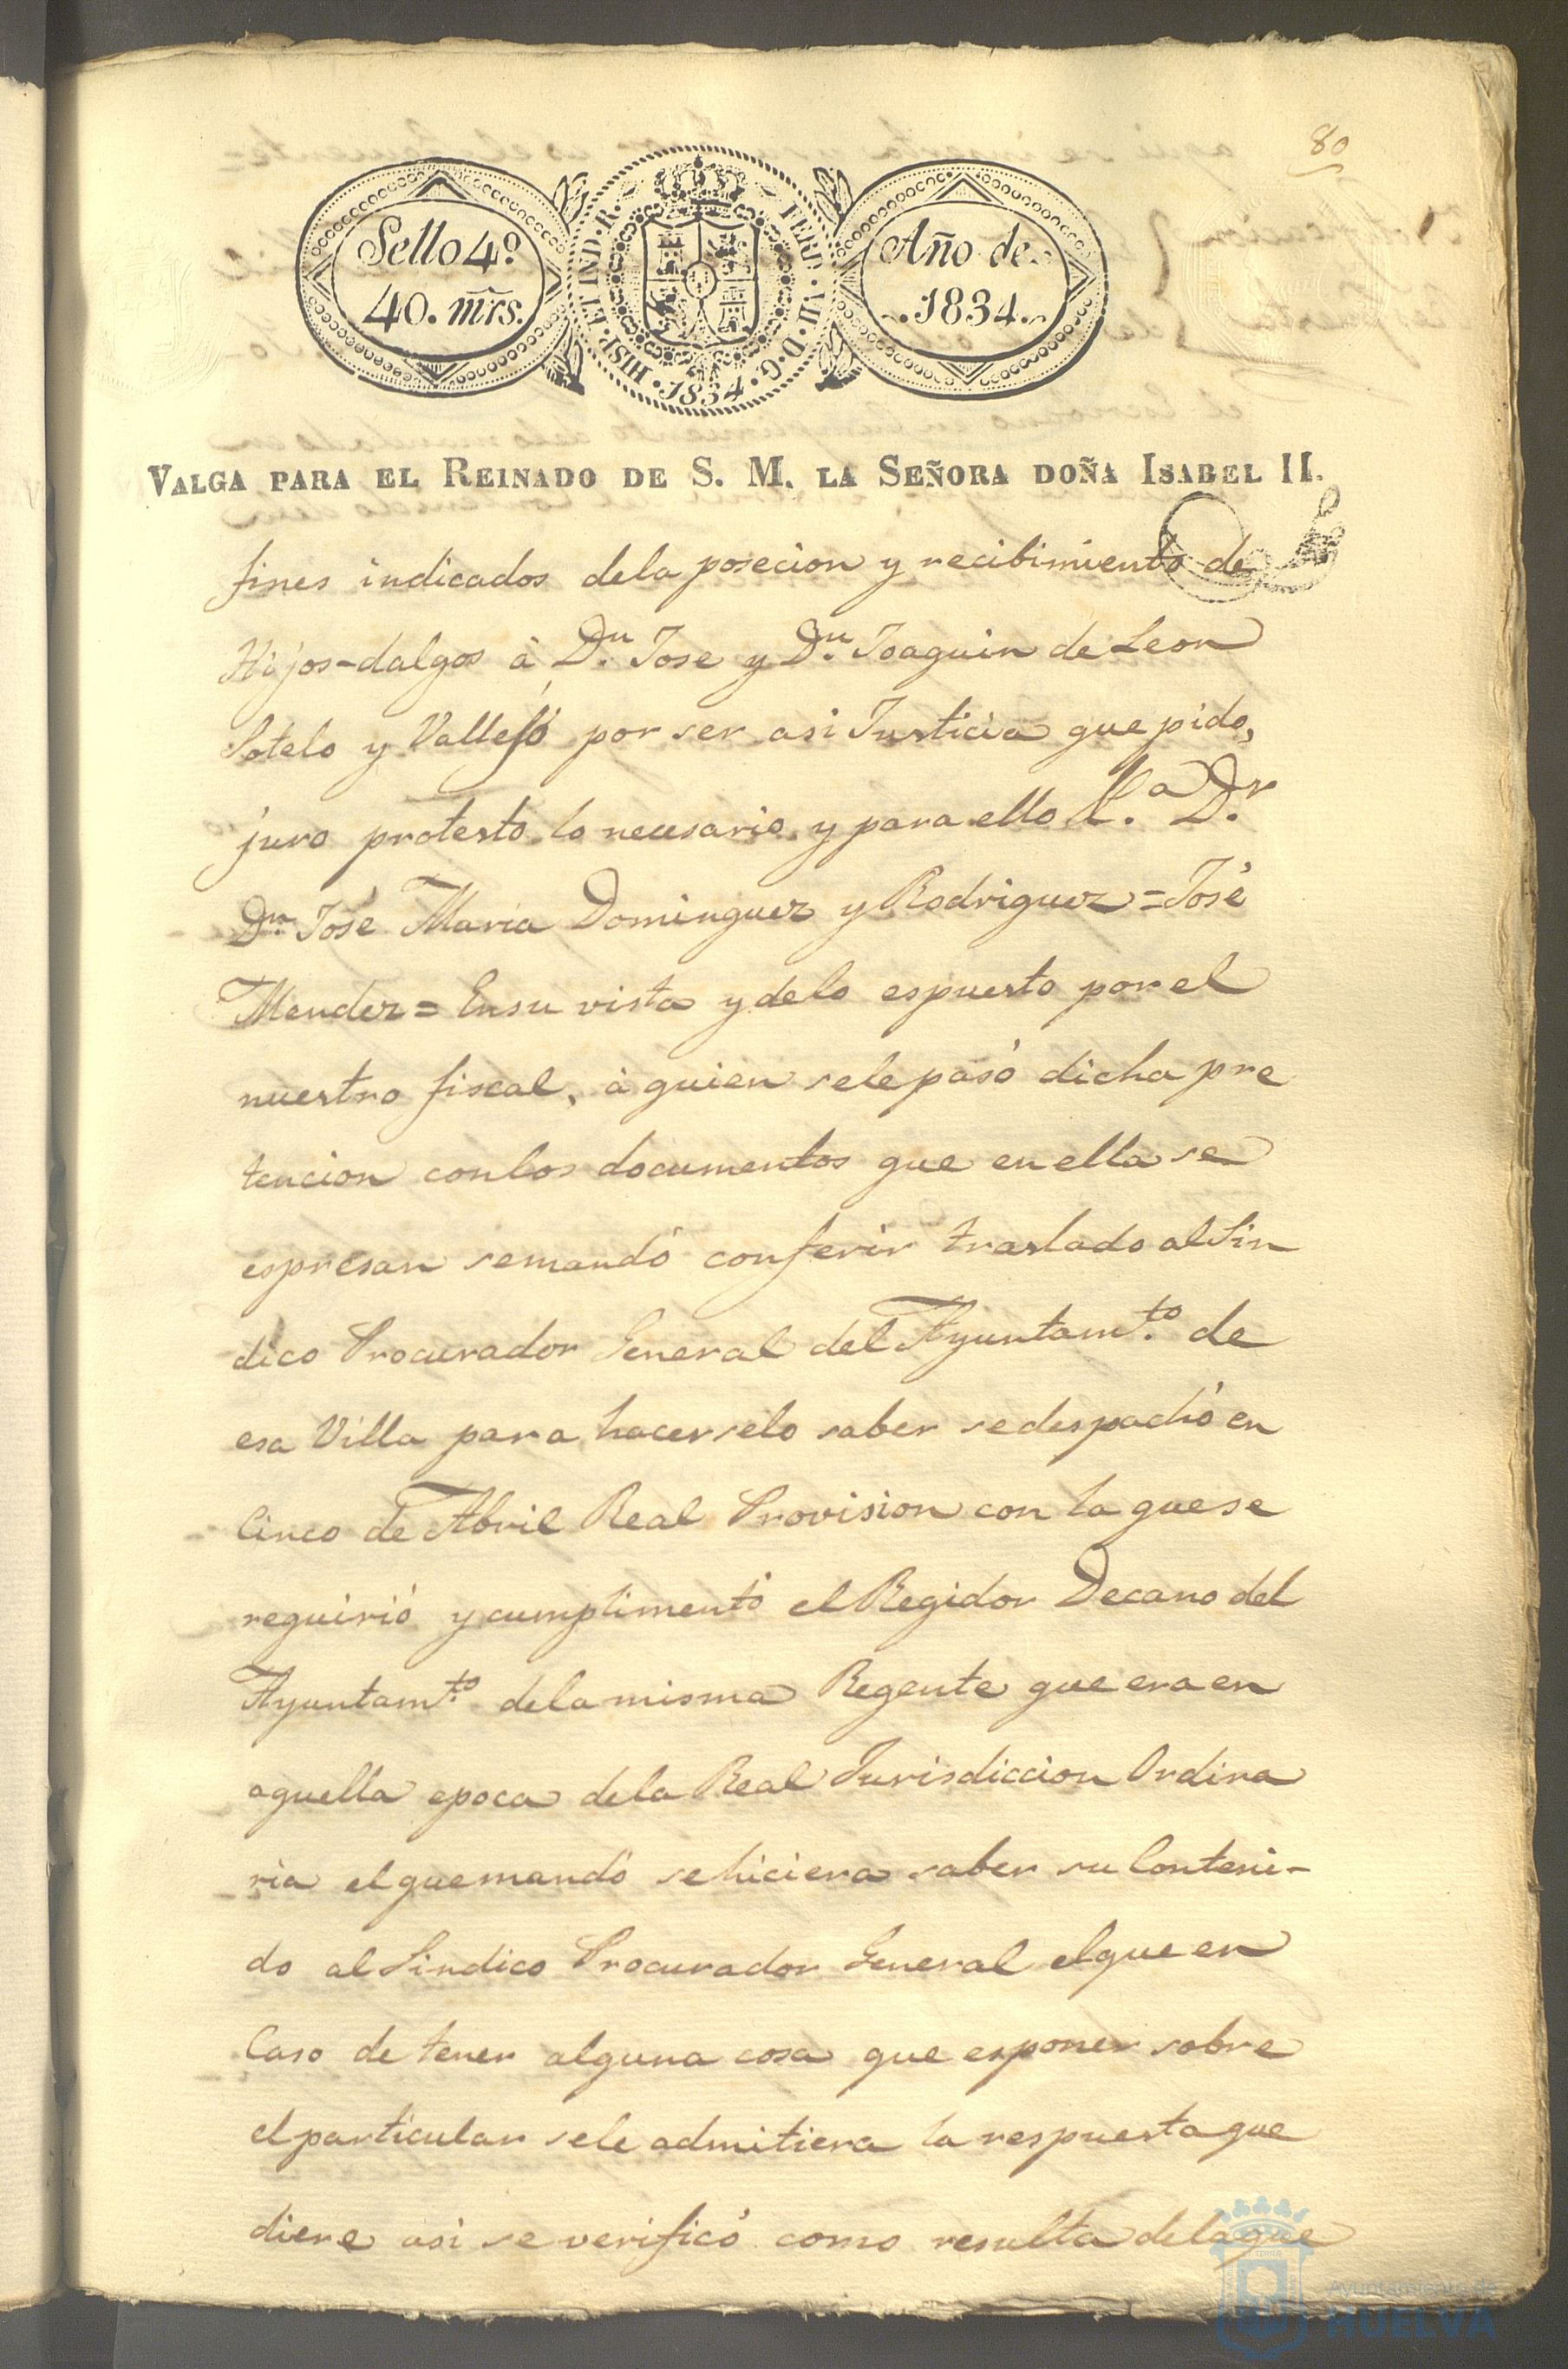 80
Sello 4º
40. mrs.
HISP. ET IND. R. FERD. VII. D. G. 1834.
Año de
1834.
VALGA PARA EL REINADO DE S. M. LA SEÑORA DOÑA ISABEL II.
fines indicados dela posecion y recibimiento de
Hijos-dalgos à Dn. Jose y Dn. Joaquin de Leon
Sotelo y Vallejo por ser asi Justicia que pido,
juro protesto lo necesario y para ello &.a Dr.
Dn. José Maria Dominguez y Rodriguez = José
Mendez = Ensu vista y delo espuesto por el
nuestro fiscal, à quien sele pasó dicha pre
tencion conlos documentos que en ella se
espresan semandó conferir traslado al Sin
dico Procurador General del Ayuntamto. de
esa Villa para hacerselo saber se despachó en
Cinco de Abril Real Provision con la que se
requirió y cumplimentó el Regidor Decano del
Ayuntamto. dela misma Regente que era en
aquella epoca dela Real Jurisdiccion Ordina
ria el quemandó sehiciera saber su Conteni-
do al Sindico Procurador General elque en
Caso de tener alguna cosa que esponer sobre
el particular sele admitiera la respuesta que
diere asi se verificó como resulta dela que
Ayuntamiento de
HUELVA